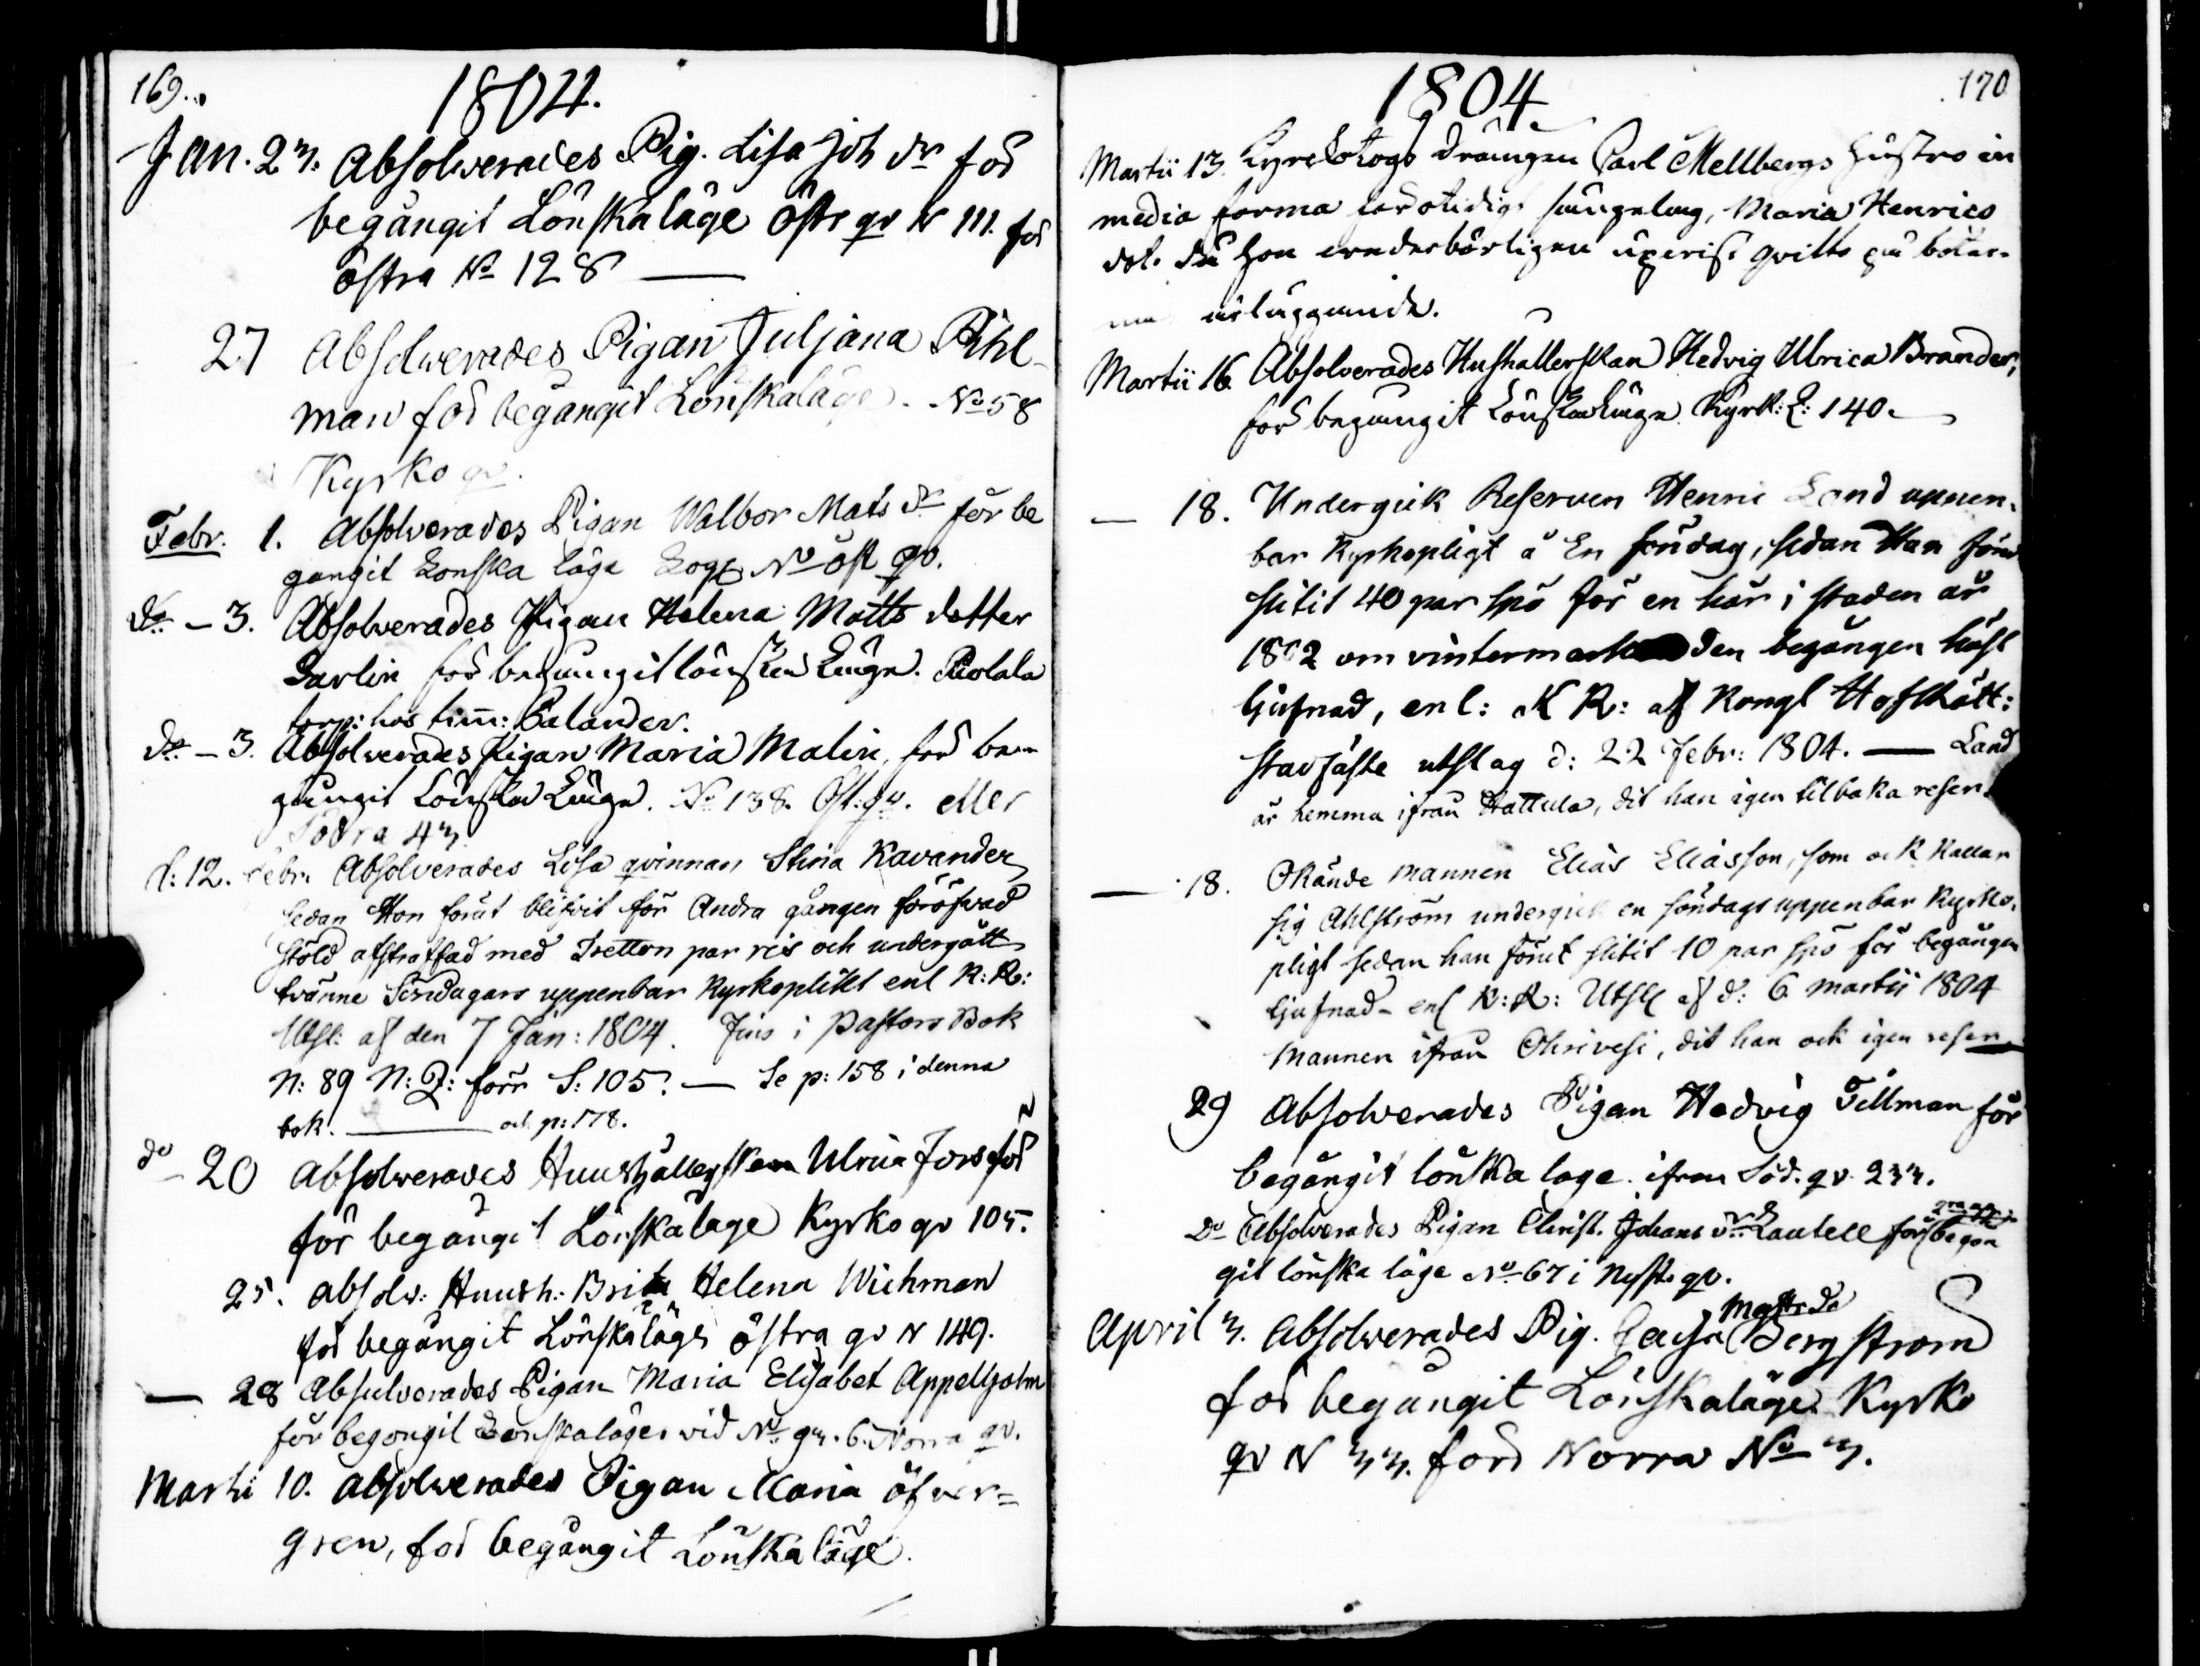 169.
1804.
Jan. 23. Absolverades Pig. Lisa Joh dr för
begångit Lönskaläge Östr qv N 111. för
östra No 128
27 Absolverades Pigan Juljana Pihl-
man för begångit Lönskaläge. No 58
Kyrko qv.
Febr. 1. Absolverades Pigan Walbor Mats dr för be
gangit Lonska läge No öst qv.
do - 3. Absolverades Pigan Helena Matts dotter
Carlin för begångit lönska Läge.
torp: hos Palander.
do - 3. Absolverades Pigan Maria Malin, för be-
gångit Lönska Läge. No 138. Öst: qv. eller
Södra 43
d: 12. Febr. Absolverades Lösa qvinnan Stina Kavander
sedan Hon förut blifvit för Andra gången föröfvad
stöld afstraffad med Tretton par ris och undergått
tvänne Söndagars uppenbar Kyrkoplikt enl K: R:
Utsl: af den 7 Jan: 1804. Fins i Pastors Bok
N: 89 N: Q: förr S: 105. — Se p: 158 i denna
bok. — och p: 178.
do - 20 Absolverades Huushållerskan Ulrica Fors
för begångit Lönskaläge Kyrko qv 105.
25. absolv: Huush: Brita Helena Wichman
för begångit Lönskaläge östra qv N 149.
— 28 Absolverades Pigan Maria Elisabet Appelholm
för begongit Lönskaläger vid No 93. 6. Norra qv.
Martii 10. Absolverades Pigan Maria Öfver=
gren, för begångit Lönskaläge.
170
1804
Martii 13. Kyrckotogs Drängen Carl Mellbergs hustro in
media forma för otidigt sängelag, Maria Henrics
dot. då hon
Martii 16. Absolverades Hushållerskan Hedvig Ulrica Brander,
för begångit Lönskaläge Kyrk: Q: 140.
— 18. Undergick Reserven Henric Land uppen-
bar Kyrkopligt å En söndag, sedan Han förut
slitit 40 par spö för en här i staden år
1802 om vintermarknaden begången häst
tjufnad, enl: K R: af Kongl Hofrätt:
utslag d: 22 Febr: 1804. — Land
är hemma ifrån Hattula, dit han igen tilbaka reser.
— 18. Okände mannen Elias Eliasson, som ock kallar
sig Ahlström undergick en söndags uppenbar Kyrko-
pligt sedan han förut slitit 10 par spö för begången
tjufnad - enl K: R: Utsl af d: 6 Martii 1804
Mannen ifrån Ohrivesi, dit han ock igen reser
29 Absolverades Pigan Hedvig Tillman för
begångit lönska lage. ifrån Söd. qv. 233.
Do Absolverades Pigan Christ. Johans dr Lautell för begon
git lönska läge No 67 i Nyst. qv.
April 3. Absolverades Pig. Cajsa Matts do Bergström
för begångit Lönskaläge Kyrko
qv N 33. förr Norra No 3.